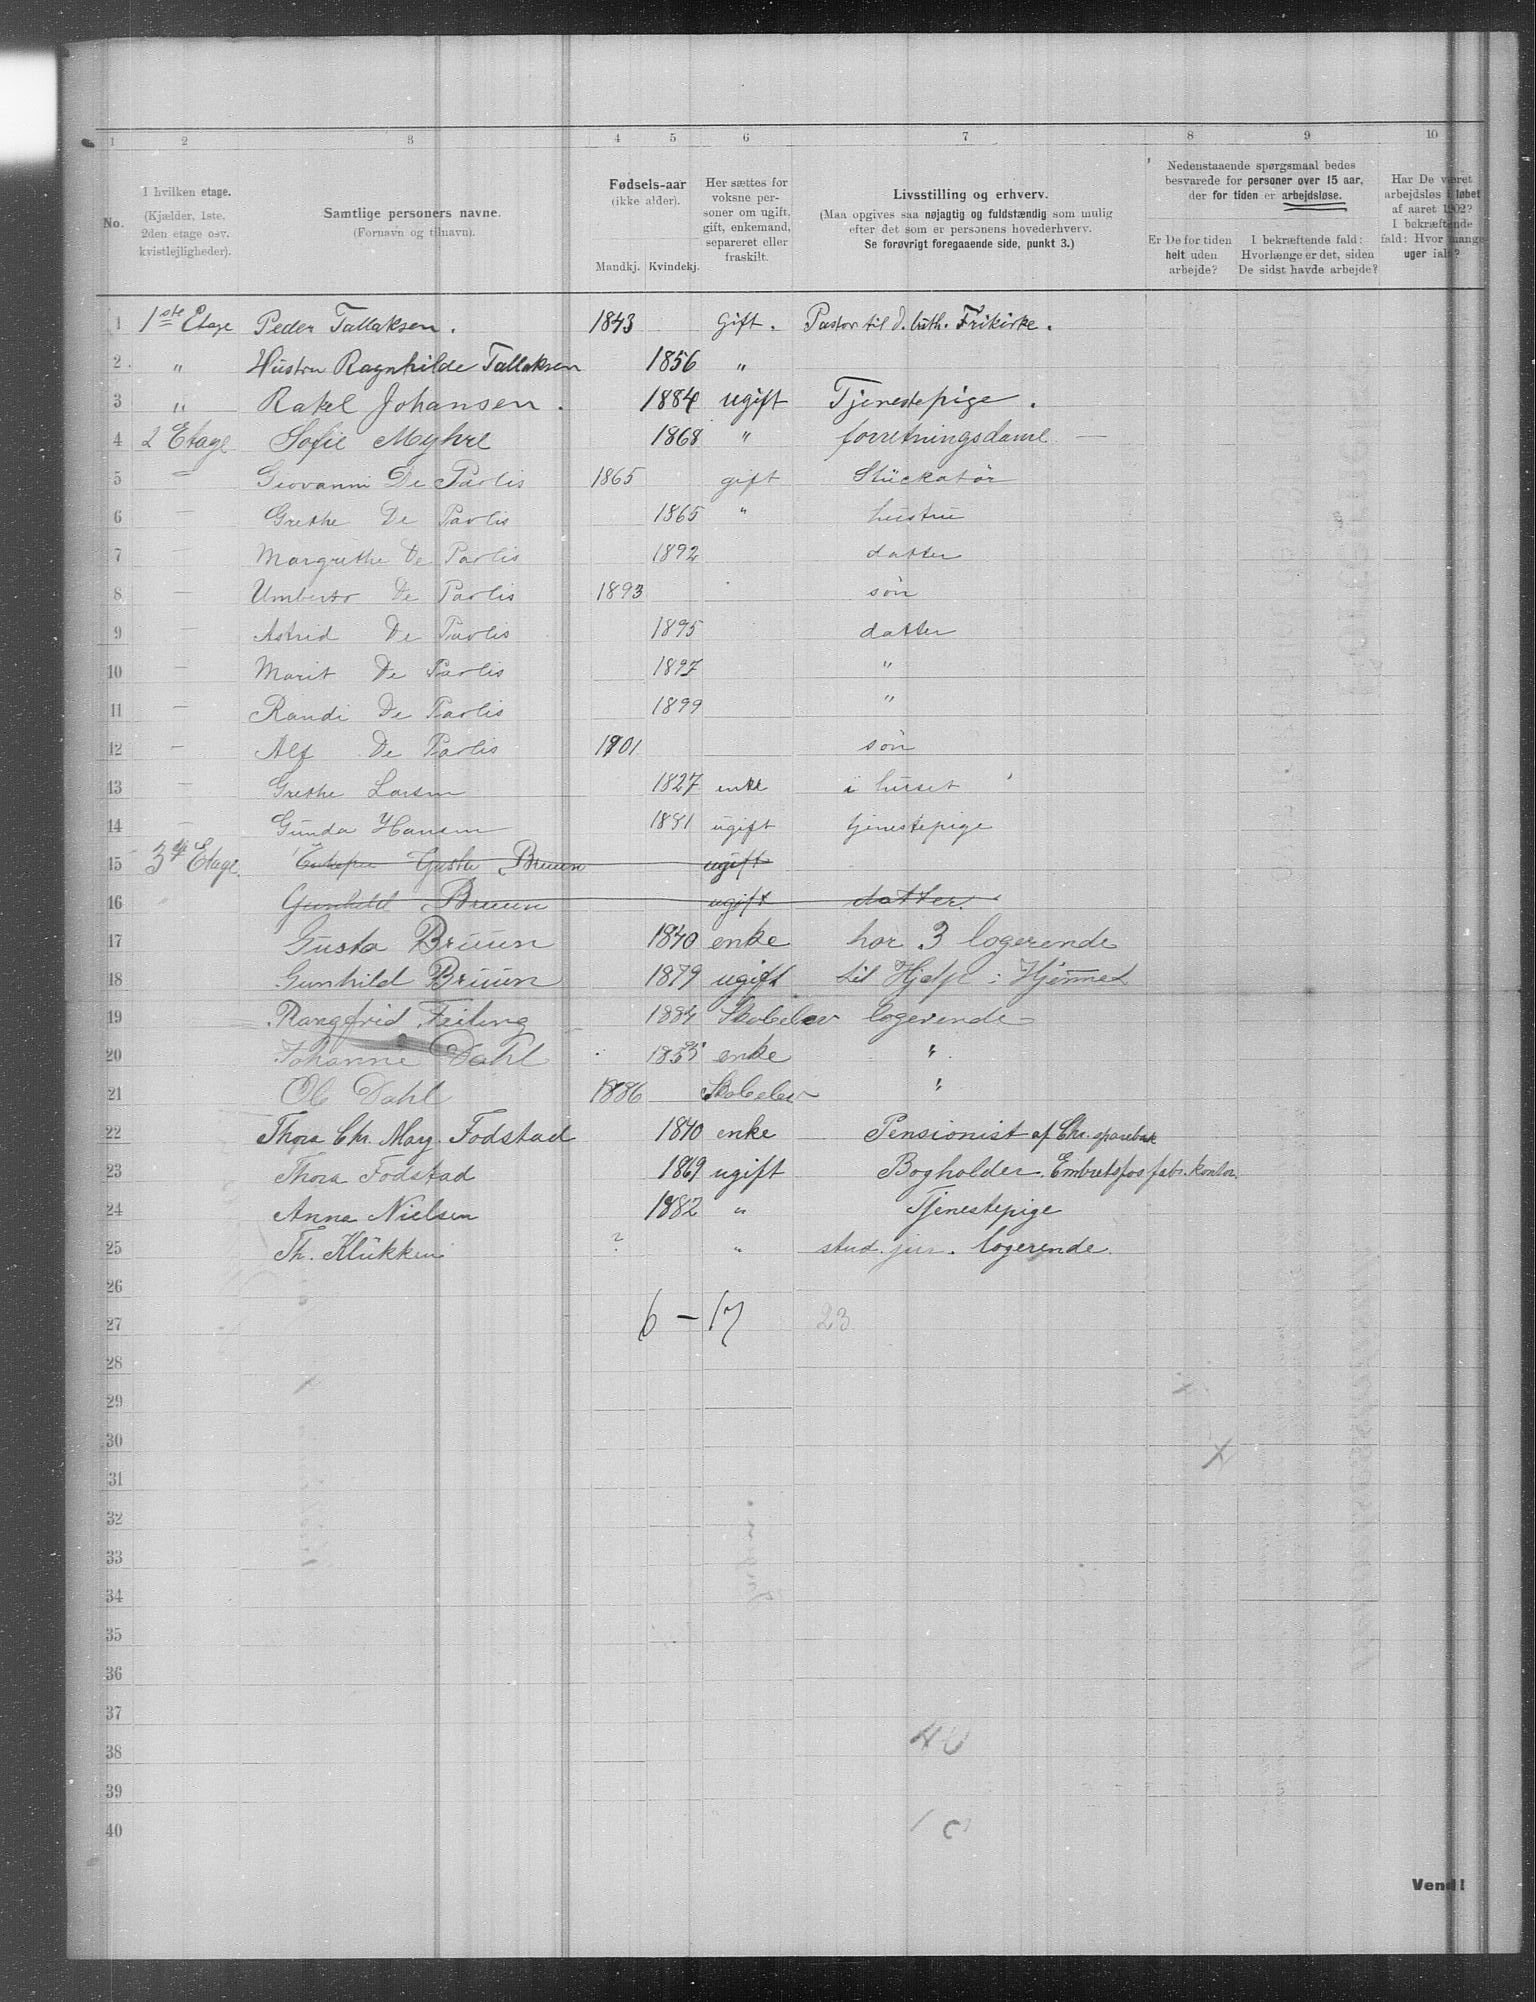 1 2 3 4 5 6 7 8 9 10
No.
I hvilken etage. (Kjælder, 1ste, 2den etage osv. kvistlejligheder).
Samtlige personers navne. (Fornavn og tilnavn).
Fødsels-aar (ikke alder). Mandkj. Kvindekj.
Her sættes for voksne personer om ugift, gift, enkemand, separeret eller fraskilt.
Livsstilling og erhverv. (Maa opgives saa nøjagtig og fuldstændig som mulig efter det som er personens hovederhverv. Se forøvrigt foregaaende side, punkt 3.)
Nedenstaaende spørgsmaal bedes besvarede for personer over 15 aar, der for tiden er arbejdsløse.
Er De for tiden helt uden arbejde?
I bekræftende fald: Hvorlænge er det, siden De sidst havde arbejde?
Har De været arbejdsløs i løbet af aaret 1902? I bekræftende fald: Hvor mange uger ialt?
1 1ste Etage Peder Tallaksen. 1843 Gift. Pastor til d. luth. Frikirke.
2 " Hustru Ragnhilde Tallaksen 1856 "
3 " Rakel Johansen. 1884 ugift Tjenestepige.
4 2 Etage Sofie Myhre 1868 " forretningsdame —
5 — Giovanni De Paolis 1865 gift Stückatør
6 — Grethe De Paolis 1865 " hustru
7 — Margrethe De Paolis 1892 datter
8 — Umberto De Paolis 1893 søn
9 — Astrid De Paolis 1895 datter
10 — Marit De Paolis 1897 "
11 — Randi De Paolis 1899 "
12 — Alf De Paolis 1901 søn
13 — Grethe Larsen 1827 enke i huset
14 — Gunda Hansen 1881 ugift tjenestepige
15 3die Etage. Gusta Bruun ugift
16 Gunhild Bruun ugift datter.
17 Gusta Bruun 1840 enke har 3 logerende
18 Gunhild Bruun 1879 ugift til Hjelp i Hjemmet
19 Rangfrid Feiling 1884 Skoleelev logerende
20 Johanne Dahl enke "
21 Ole Dahl 1886 Skoleelev "
22 Thora Chr. May. Fodstad 1840 enke Pensionist af Chr. sparebank
23 Thora Fodstad 1869 ugift Bogholder. kontor.
24 Anna Nielsen 1882 " Tjenestepige
25 Th. Klükken ? " stud. jur. logerende.
26
27 6 – 17 23
28
29
30
31
32
33
34
35
36
37
38 40
39
40
Vend!